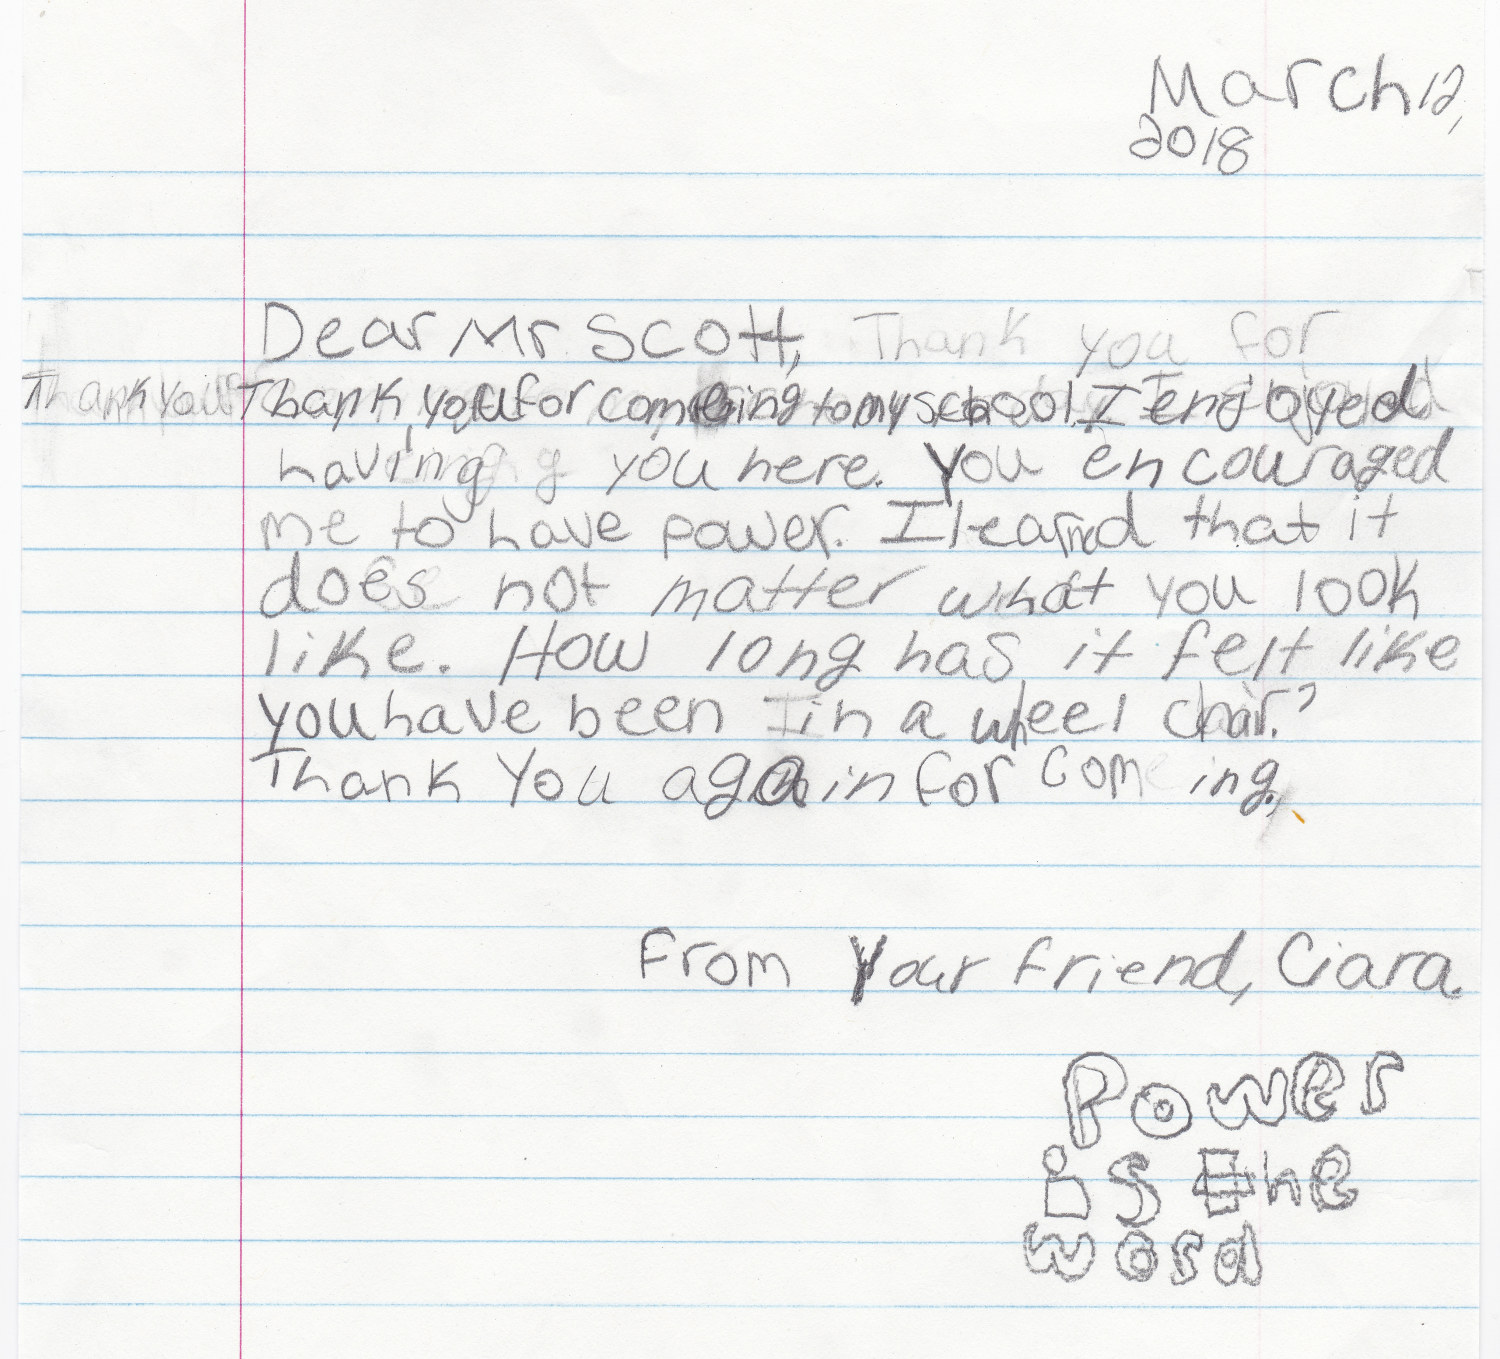 March 12,
2018
Dear Mr. Scott, Thank you for
Thank you Thank you for coming to my school. I enjoyed
having you here. You encouraged
me to have power. I learned that it
does not matter what you look
like. How long has it felt like
you have been in a wheel chair?
Thank You again for coming,
From Your friend, Ciara.
Power
is the
word